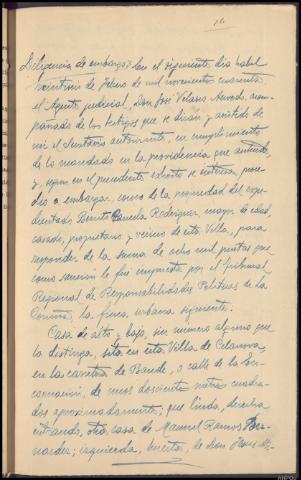 16
Diligencia de embargo: En el siguiente dia habil
veintiuno de Febrero de mil novecientos cuarenta
el Agente judicial, Don José Velasco Nevado, acom-
pañado de los testigos que se dirán y asistido de
mi el Secretario autorizante, en cumplimiento
de lo mandado en la providencia que antecede,
y, segun en el precedente exhorto se interesa, proce-
dio a embargar, como de la propiedad del expe-
dientado Benito Rodriguez, mayor de edad,
casado, propietario y vecino de esta Villa, para
responder de la suma de ocho mil pesetas que
como sancion le fué impuesta por el Tribunal
Regional de Responsabilidades Politicas de la
Coruña, la finca urbana siguiente:
Casa de alto y bajo, sin numero alguno que
la distinga, sita en esta Villa de Celanova,
en la carretera de Bande, o calle de la En-
carnacion, de unos doscientos metros cuadra-
dos aproximadamente; que linda, derecha
entrando, otra casa de Manuel Ramos
izquierda, huerta, de Don